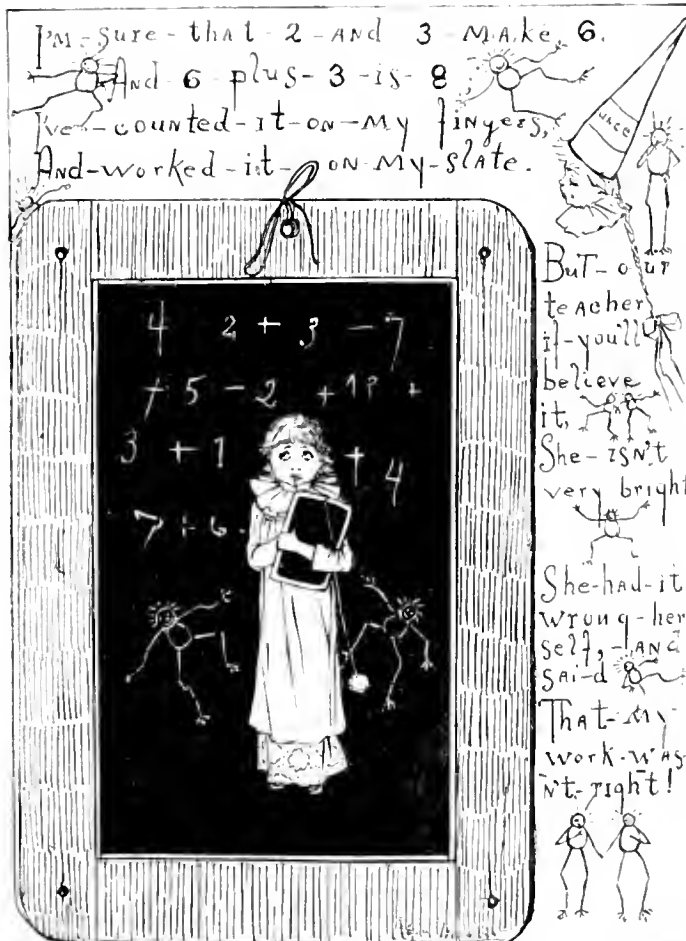 I'M-sure-that-2-AND 3-MAke 6.
AND-6-plus-3-is-8
I've-counted-it-on-My fingers,
And-worked-it-on-MY-slAte.
UNCE
BuT-our
teAcher
if-you'll
believe
it,
She-ISN'T
very bright
She-had-it
wrong-her
self,-ANd
SAid
ThAt-My
work-wAs-
n't-right!
4 2 + 3 - 7
+ 5 - 2 + 1? +
3 + 1 + 4
7 + 6.